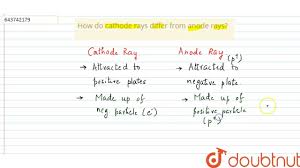 643742179
How do cathode rays differ from anode rays?
Cathode Ray
Anode Ray (p+)
→ Attracted to
positive plates
→ Attracted to
negative plate
→ Made up of
neg particle (e-)
→ Made up of
positive particle
(p+)
doubtnut